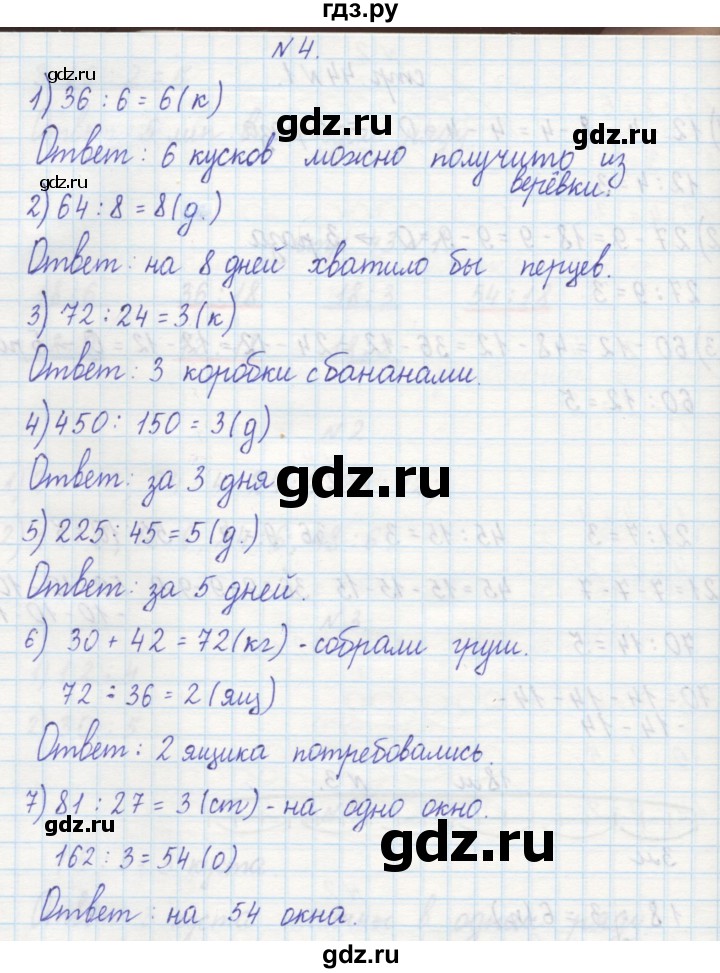 гдз.ру
N 4.
gdz.ru
1) 36 : 6 = 6 (к)
gdz.ru
gdz.ru
Ответ: 6 кусков можно получить из
верёвки.
gdz.ru
2) 64 : 8 = 8 (д.)
Ответ: на 8 дней хватило бы перцев.
3) 72 : 24 = 3 (к)
Ответ: 3 коробки с бананами.
4) 450 : 150 = 3 (д)
Ответ: за 3 дня
gdz.ru
5) 225 : 45 = 5 (д.)
Ответ: за 5 дней.
6) 30 + 42 = 72 (кг) - собрали груш.
72 : 36 = 2 (ящ)
Ответ: 2 ящика потребовались.
7) 81 : 27 = 3 (ст) - на одно окно.
gdz.ru
gdz.ru
162 : 3 = 54 (о)
Ответ: на 54 окна.
gdz.ru
gdz.ru